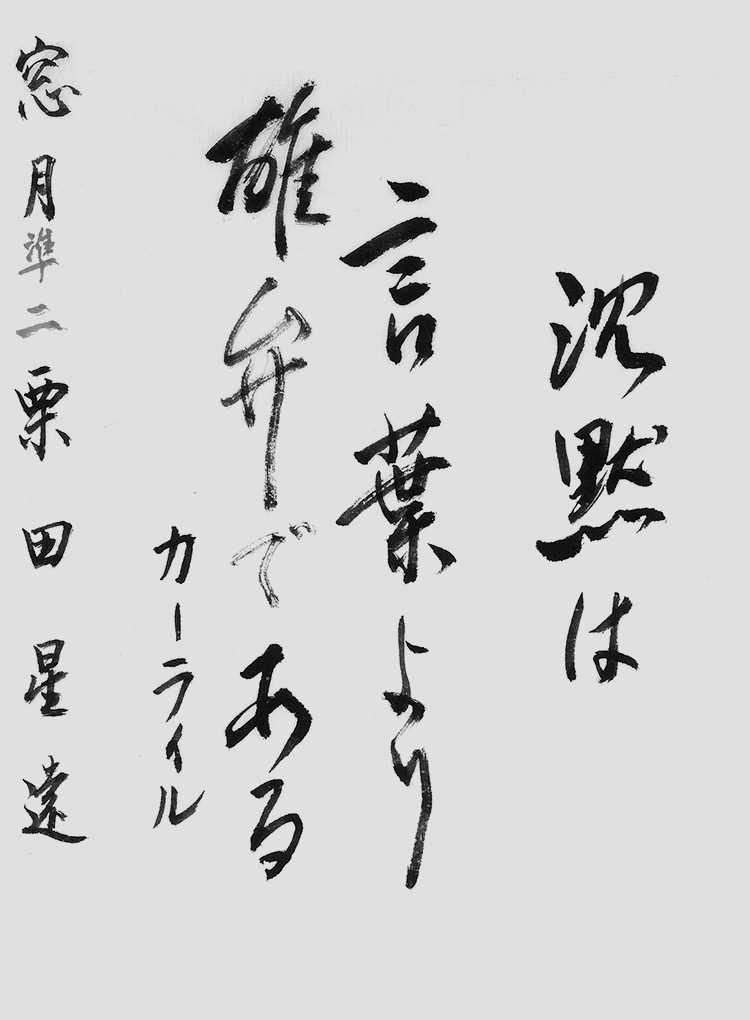 沈黙は
言葉より
雄弁である
カーライル
窓月準二栗田星遠